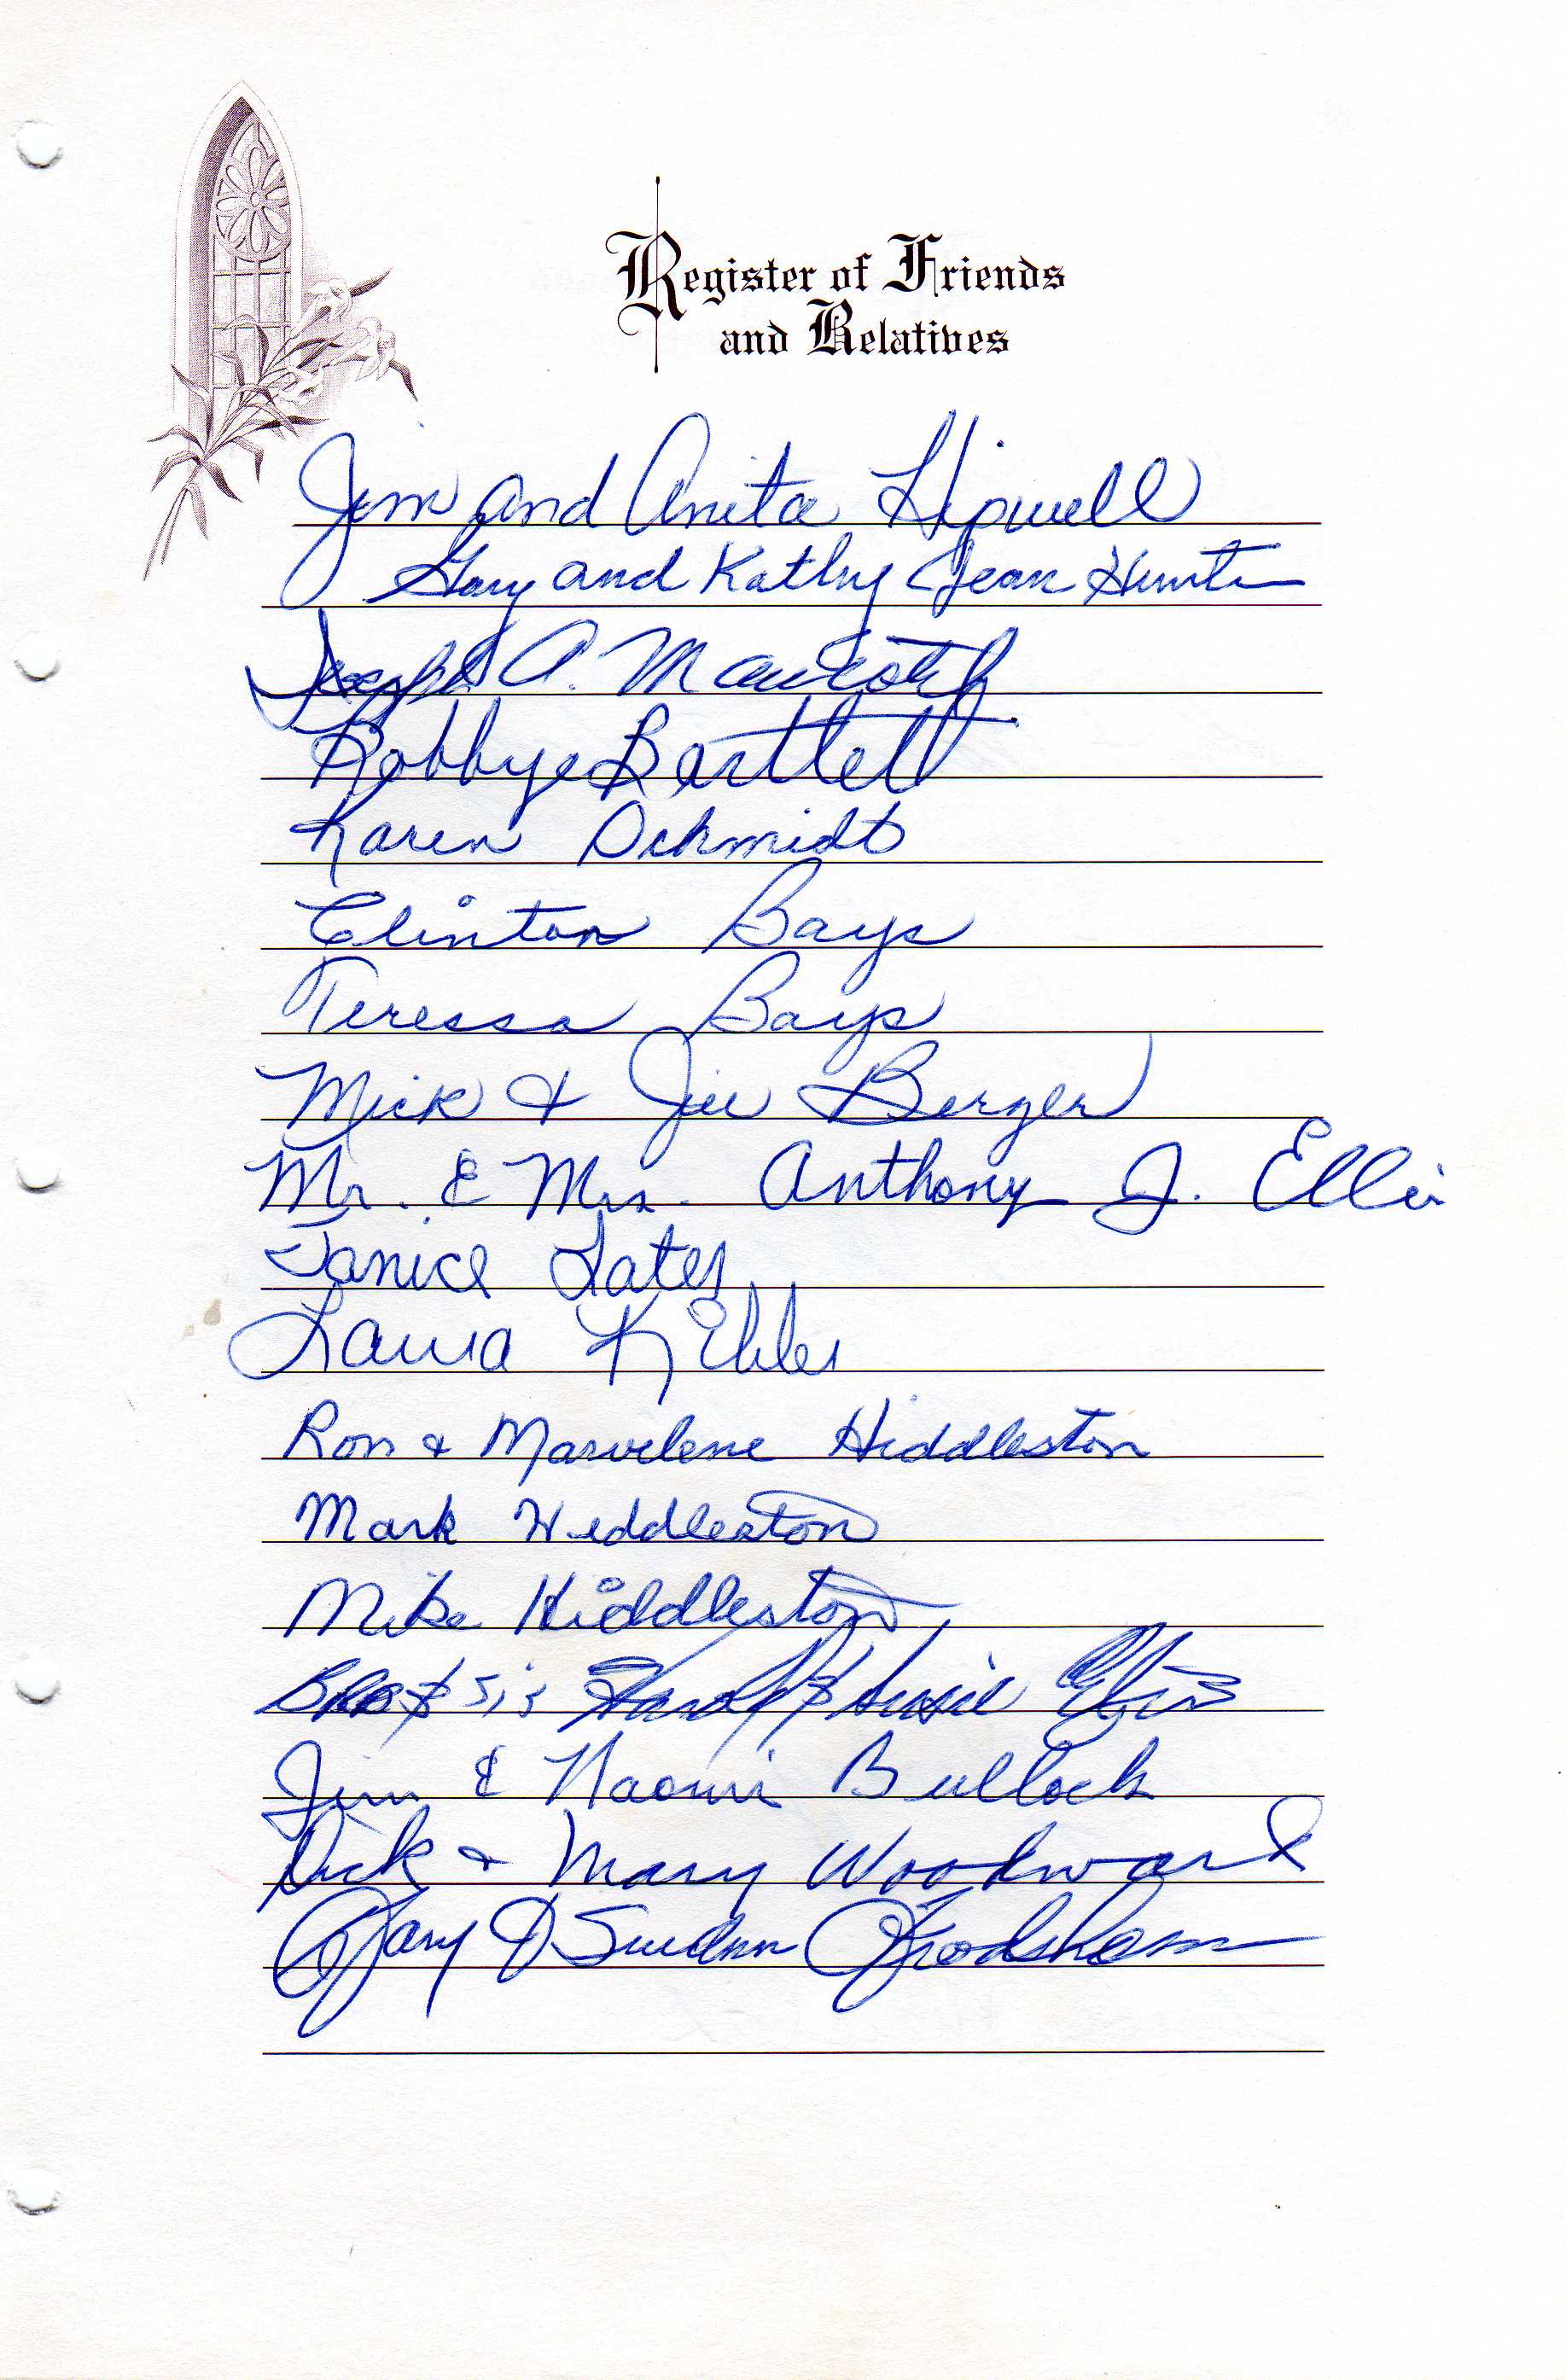 Register of Friends
and Relatives
Jim and Anita Hipwell
Gary and Kathy Jean Hunter
Joseph A.
Robbye Bartlett
Karen Schmidt
Clinton Bays
Teressa Bays
Mick & Jill Berger
Mr. & Mrs. Anthony J. Ellis
Janice
Laura
Ron & Marvelene Hiddleston
Mark Hiddleston
Mike Hiddleston
Bro & Sis & Susie
Jim & Naomi Bullock
Dick & Mary Woodward
Gary Frodsham